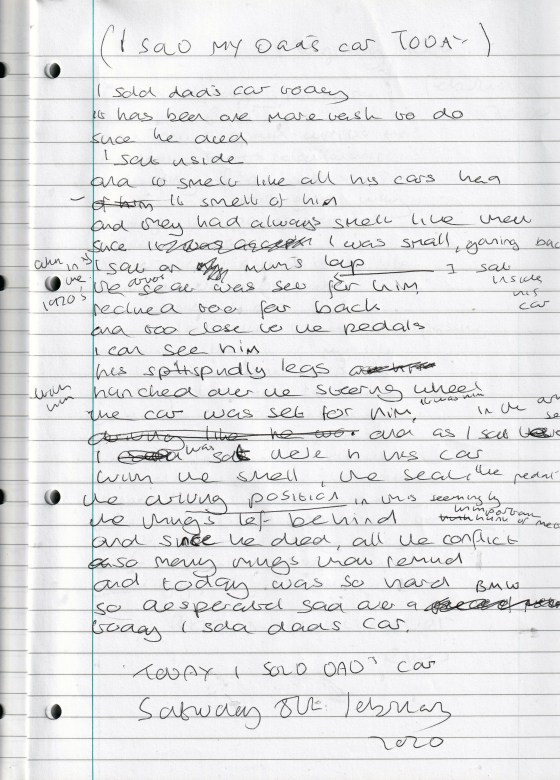 (I SOLD MY DAD'S CAR TODAY)
I sold dad's car today
it has been one more task to do
since he died
I sat inside
and it smelt like all his cars had
it smelt of him
and they had always smelt like them
since I was small, going back
I sat on mum's lap
when in the 1970's
I sat inside his car
the seat was set for him
reclined too far back
and too close to the pedals
I can see him
his spindly legs
hunched over the steering wheel
the car was set for him, it was him
in the
and as I sat
I was sat there in his car
with the smell, the seat, the
the driving position in this seemingly
unimportant
the things left behind
and since he died, all the conflict
so many things now remind
and today was so hard
so desperately sad over a BMW
today I sold dads car.
TODAY I SOLD DAD'S CAR
Saturday 8th february
2020